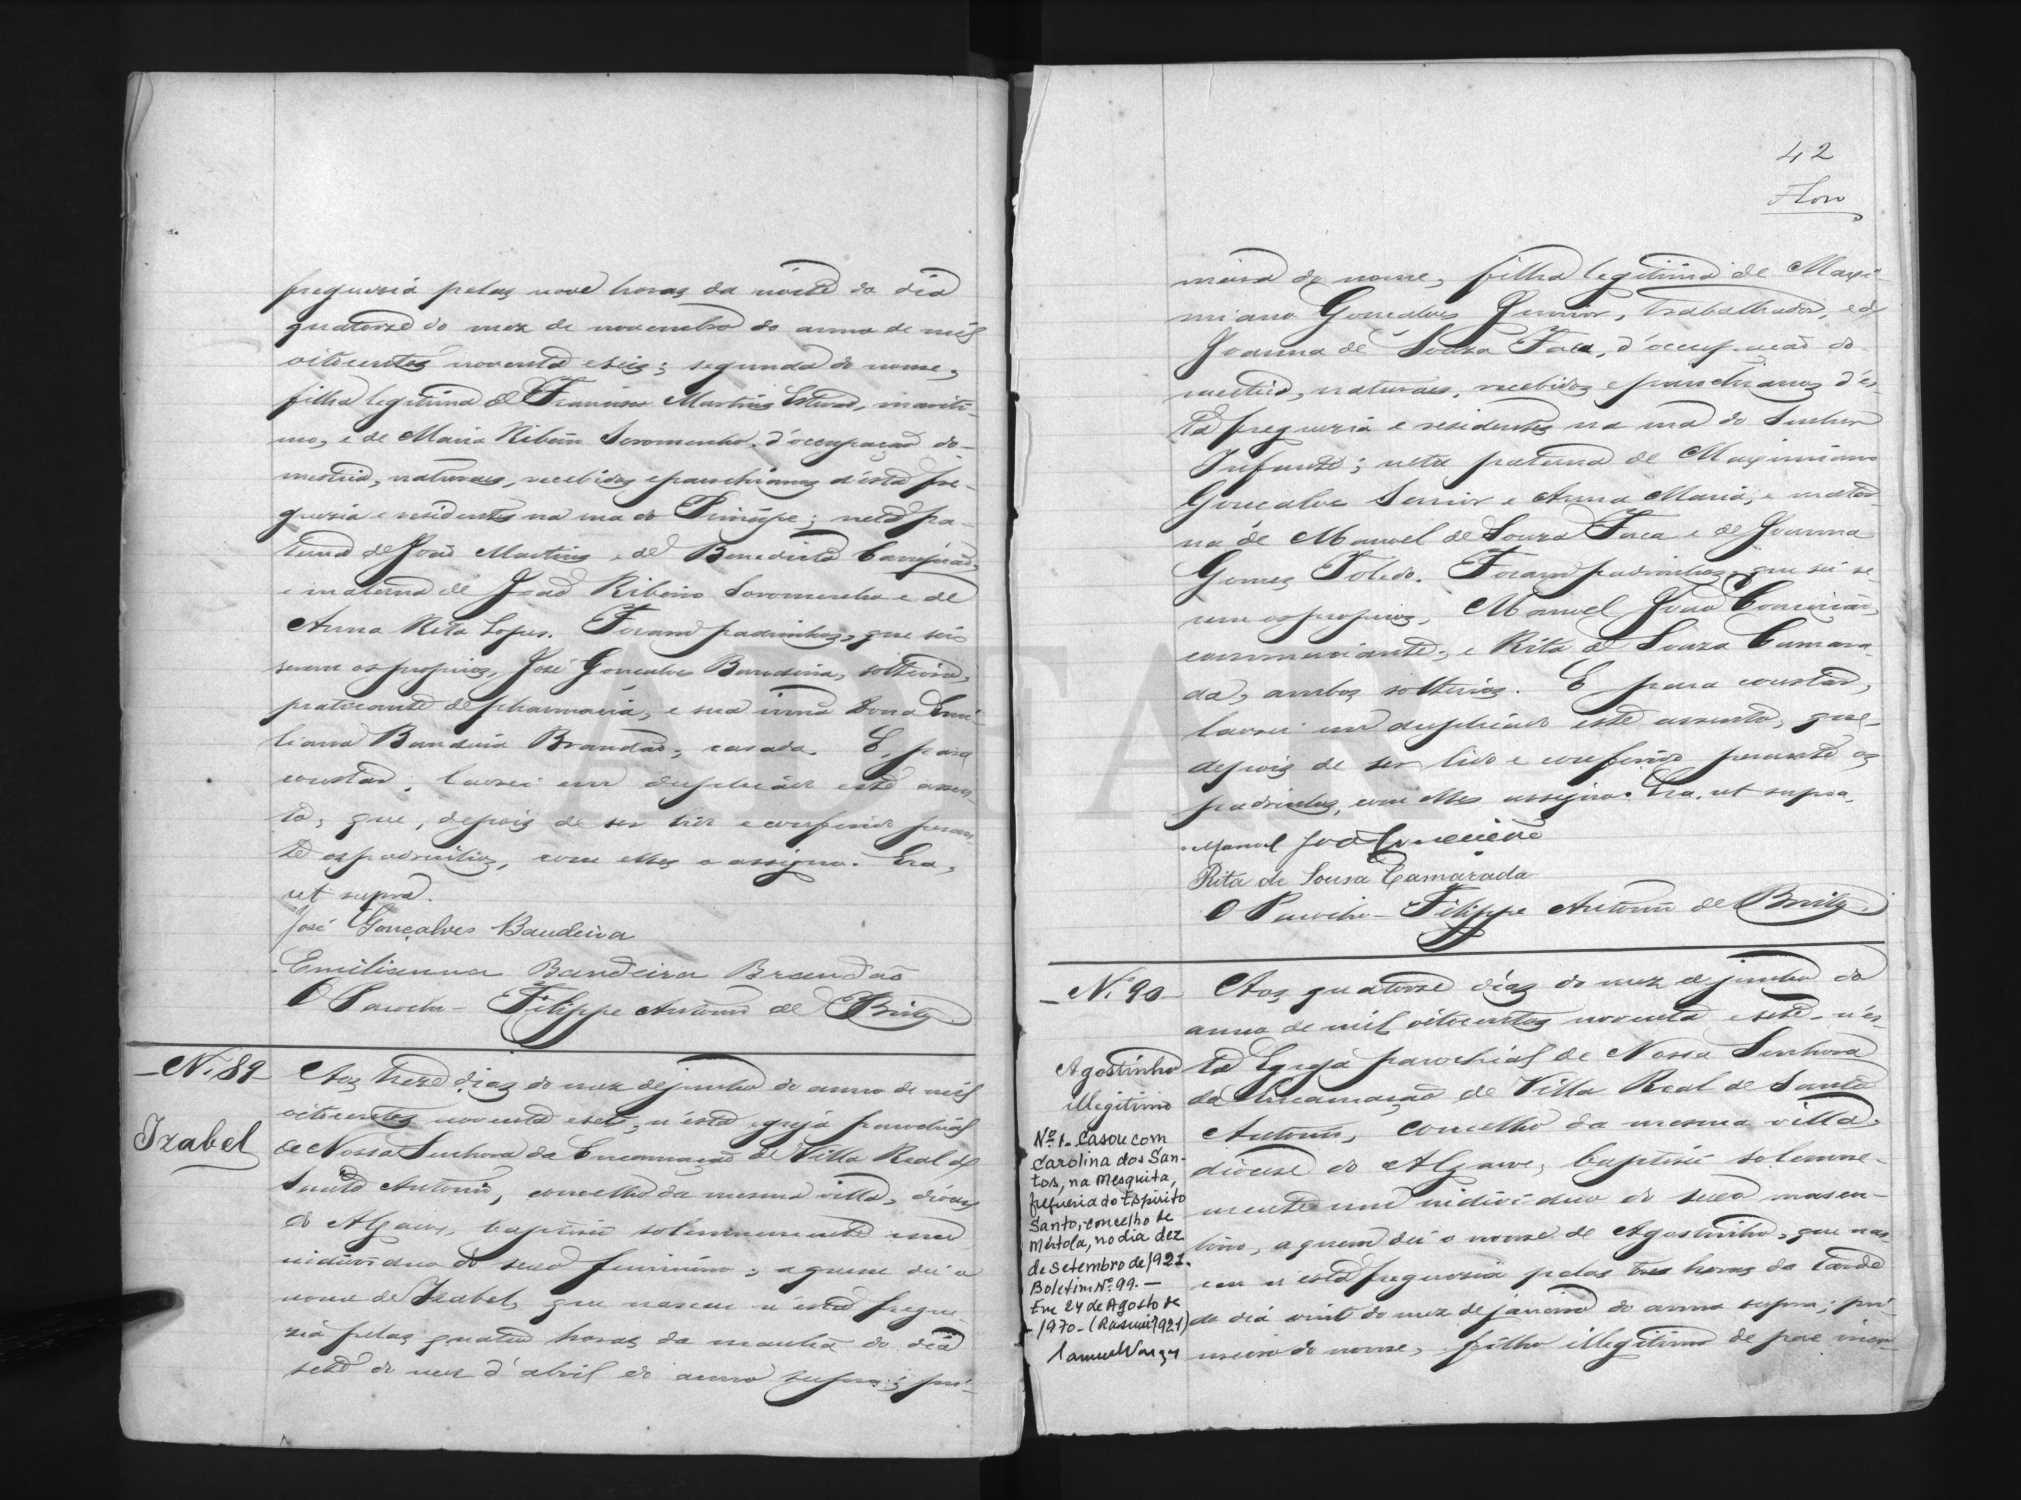 freguesia pelas nove horas da noite do dia
quatorze do mez de novembro do anno de mil
oitocentos noventa e seis; segunda do nome,
filha legitima de Francisco Martins Estevão, mariti-
mo, e de Maria Ribeiro Soromenho, d'occupação do-
mestica, naturaes, recebidos e parochianos d'esta fre-
guesia e residentes na rua do Principe; neta pa-
terna de João Martins e de Benedicta Conceição
e materna de João Ribeiro Soromenho e de
Anna Rita Lopes. Foram padrinhos, que sei
serem os proprios, José Gonçalves Bandeira, solteiro,
praticante de pharmacia, e sua irmã Dona Emi-
liana Bandeira Brandão, casada. E, para
constar, lavrei em duplicado este assen-
to, que, depois de ser lido e conferido peran-
te os padrinhos, com elles o assigno. Era,
ut supra.
José Gonçalves Bandeira
Emilianna Bandeira Brandão
O Parocho - Filippe Antonio de Brito
- N. 89 -
Izabel
Aos treze dias do mez de junho do anno de mil
oitocentos noventa e sete, n'esta egreja parochial
de Nossa Senhora da Encarnação de Villa Real de
Santo Antonio, concelho da mesma villa, diocese
do Algarve, baptisei solemnemente um
individuo do sexo feminino, a quem dei o
nome de Izabel, que nasceu n'esta fregue-
sia pelas quatro horas da manhã do dia
sete do mez d'abril do anno supra; pri-
42
meira do nome, filha legitima de Maxi-
miano Gonçalves Junior, trabalhador, e de
Joanna de Souza Faca, d'occupação do-
mestica, naturaes, recebidos e parochianos d'es-
ta freguesia e residentes na rua do Senhor
Infante; neta paterna de Maximiano
Gonçalves Senior e Anna Maria, e mater-
na de Manoel de Souza Faca e de Joanna
Gomes Toledo. Foram padrinhos, que sei se-
rem os proprios, Manoel João Conceição,
commerciante, e Rita de Souza Camara-
da, ambos solteiros. E para constar,
lavrei em duplicado este assento, que,
depois de ser lido e conferido perante os
padrinhos, com elles assigno. Era, ut supra.
Manoel João Conceição
Rita de Sousa Camarada
O Parocho - Filippe Antonio de Brito
- N. 90 -
Agostinho
illegitimo
Nº 1. Casou com
Carolina dos San-
tos, na Mesquita,
freguesia do Espirito
Santo, concelho de
Mértola, no dia dez
de Setembro de 1921.
Boletim Nº 99. -
Em 24 de Agosto de
1970. (1921)
Samuel
Aos quatorze dias do mez de junho do
anno de mil oitocentos noventa e sete, n'es-
ta Egreja parochial de Nossa Senhora
da Encarnação de Villa Real de Santo
Antonio, concelho da mesma villa,
diocese do Algarve, baptisei solemne-
mente um individuo do sexo mascu-
lino, a quem dei o nome de Agostinho, que nas-
ceu n'esta freguesia pelas tres horas da tarde
do dia vinte do mez de janeiro do anno supra; pri-
meiro do nome, filho illegitimo de pae incog-
ADFAR